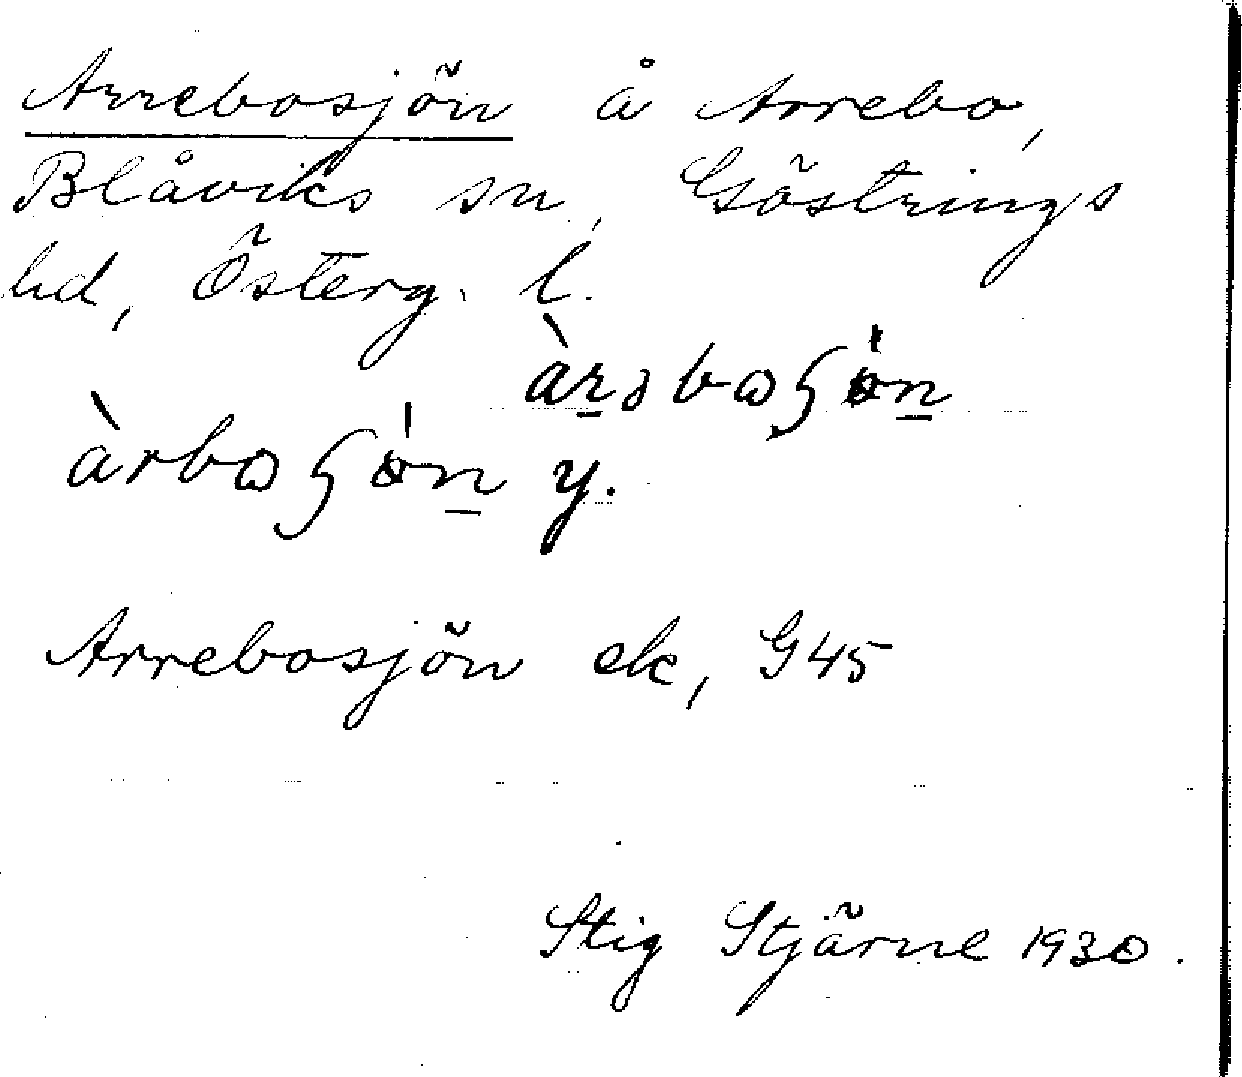 Arrebosjön å Arrebo,
Blåviks sn, Göstrings
hd, Österg. l.
àrəbɷʃɵ̀n
àrbɷʃɵ̀n y.
Arrebosjön ek, G45
Stig Stjärne 1930.